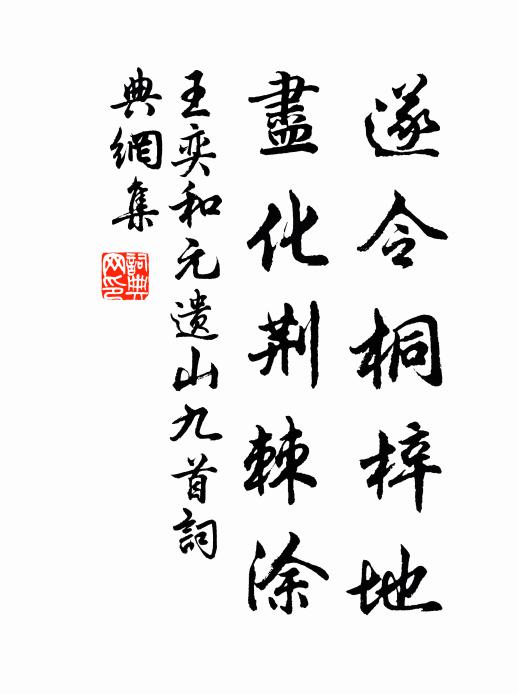 遂令桐梓地
盡化荆棘涂
王奕和元遺山九首詞
典網集
詞典網印